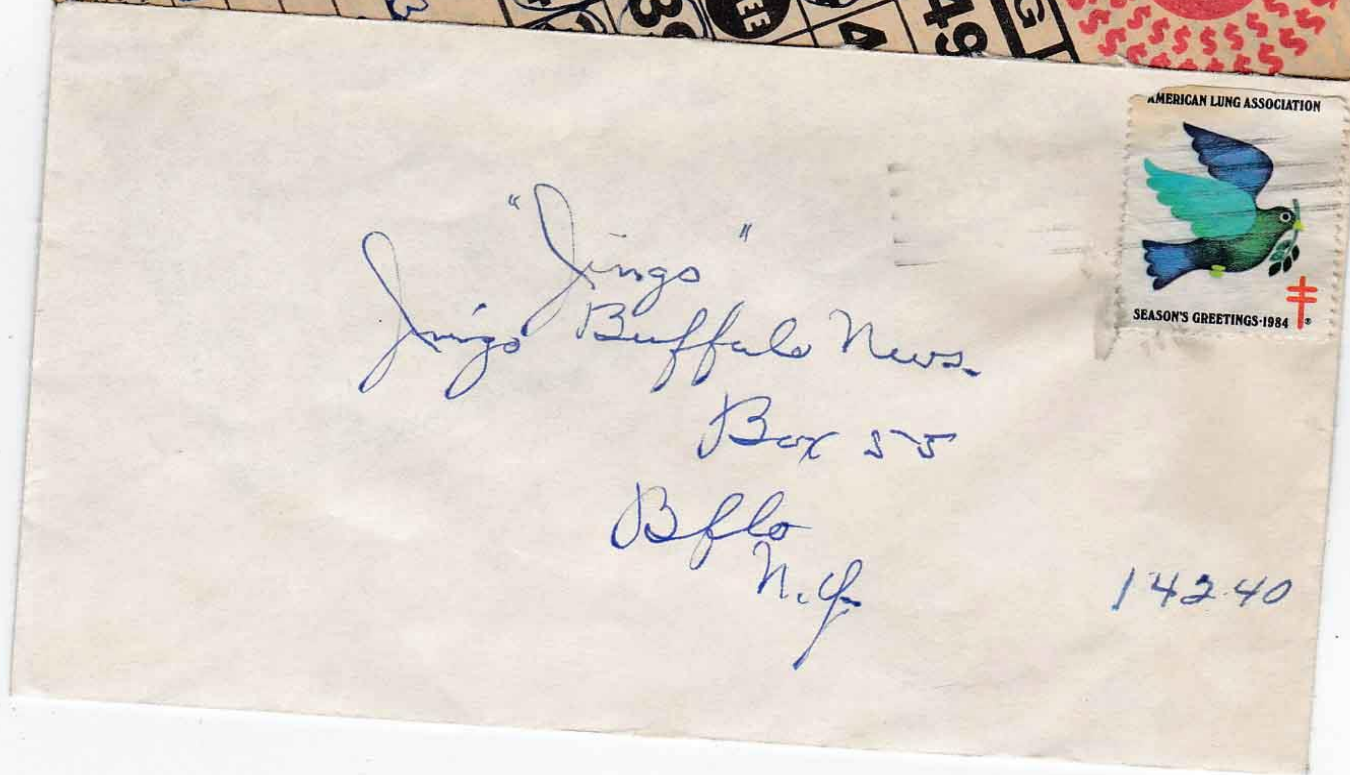 49
G
AMERICAN LUNG ASSOCIATION
SEASON'S GREETINGS·1984 ®
"Jingo"
Jingo Buffalo News.
Box 55
Bflo
N.Y.
14240